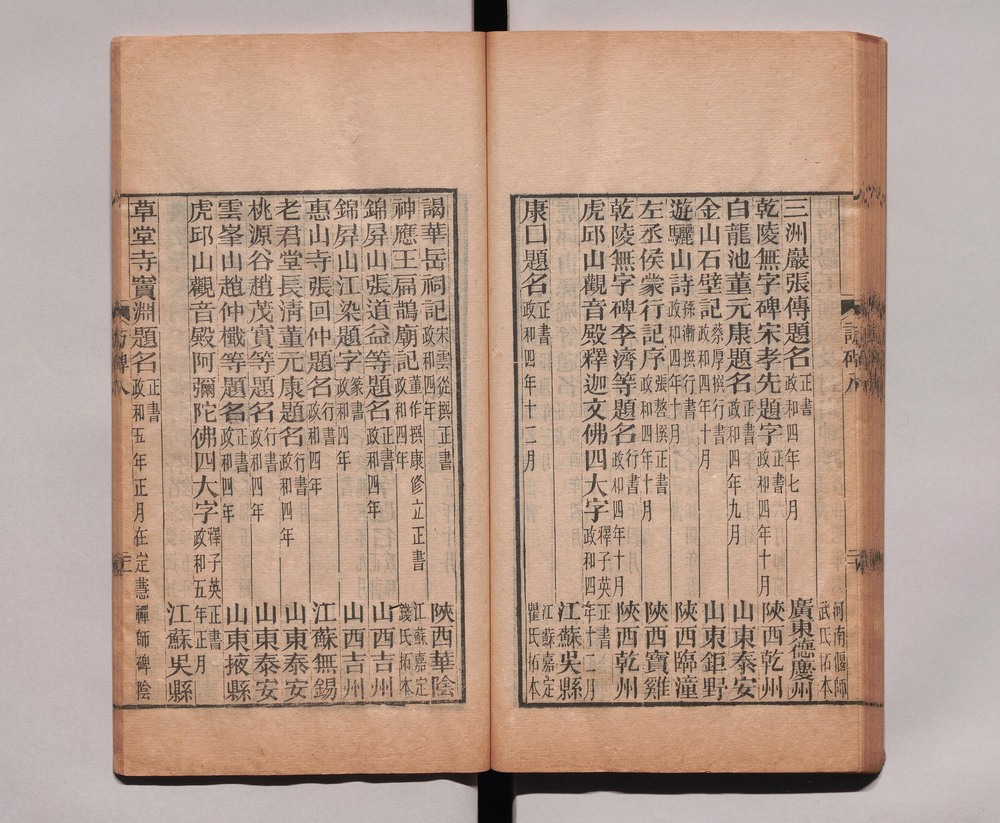 河南偃師
武氏拓本
三洲巖張傅題名 正書 政和四年七月 廣東德慶州
乾陵無字碑宋孝先題字 正書 政和四年十月 陝西乾州
白龍池董元康題名 正書 政和四年九月 山東泰安
金山石壁記 蔡厚撰行書 政和四年十月 山東鉅野
遊驪山詩 孫漸撰行書 政和四年十月 陝西臨潼
左丞侯蒙行記序 張撰正書 政和四年十月 陝西寶雞
乾陵無字碑李濟等題名 行書 政和四年十月 陝西乾州
虎邱山觀音殿釋迦文佛四大字 釋子英正書 政和四年十二月 江蘇吳縣
康口題名 正書 政和四年十二月 江蘇嘉定瞿氏拓本
謁華岳祠記 宋雲從撰正書 政和四年 陝西華陰
神應王扁鵲廟記 董作撰康修立正書 政和四年 江蘇嘉定錢氏拓本
錦屏山張道益等題名 正書 政和四年 山西吉州
錦屏山江染題字 篆書 政和四年 山西吉州
惠山寺張回仲題名 行書 政和四年 江蘇無錫
老君堂長清董元康題名 行書 政和四年 山東泰安
桃源谷趙茂實等題名 行書 政和四年 山東泰安
雲峯山趙仲檝等題名 正書 政和四年 山東掖縣
虎邱山觀音殿阿彌陀佛四大字 釋子英正書 政和五年正月 江蘇吳縣
草堂寺寶淵題名 正書 政和五年正月在定慧禪師碑陰